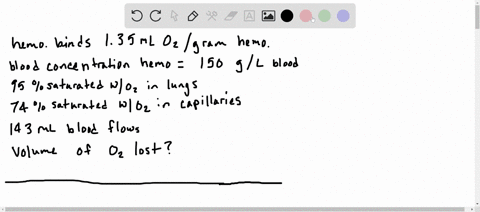 hemo. binds 1.35 mL O₂/gram hemo.
blood concentration hemo = 150 g/L blood
95% saturated w/O₂ in lungs
74% saturated w/O₂ in capillaries
143 mL blood flows
Volume of O₂ lost?